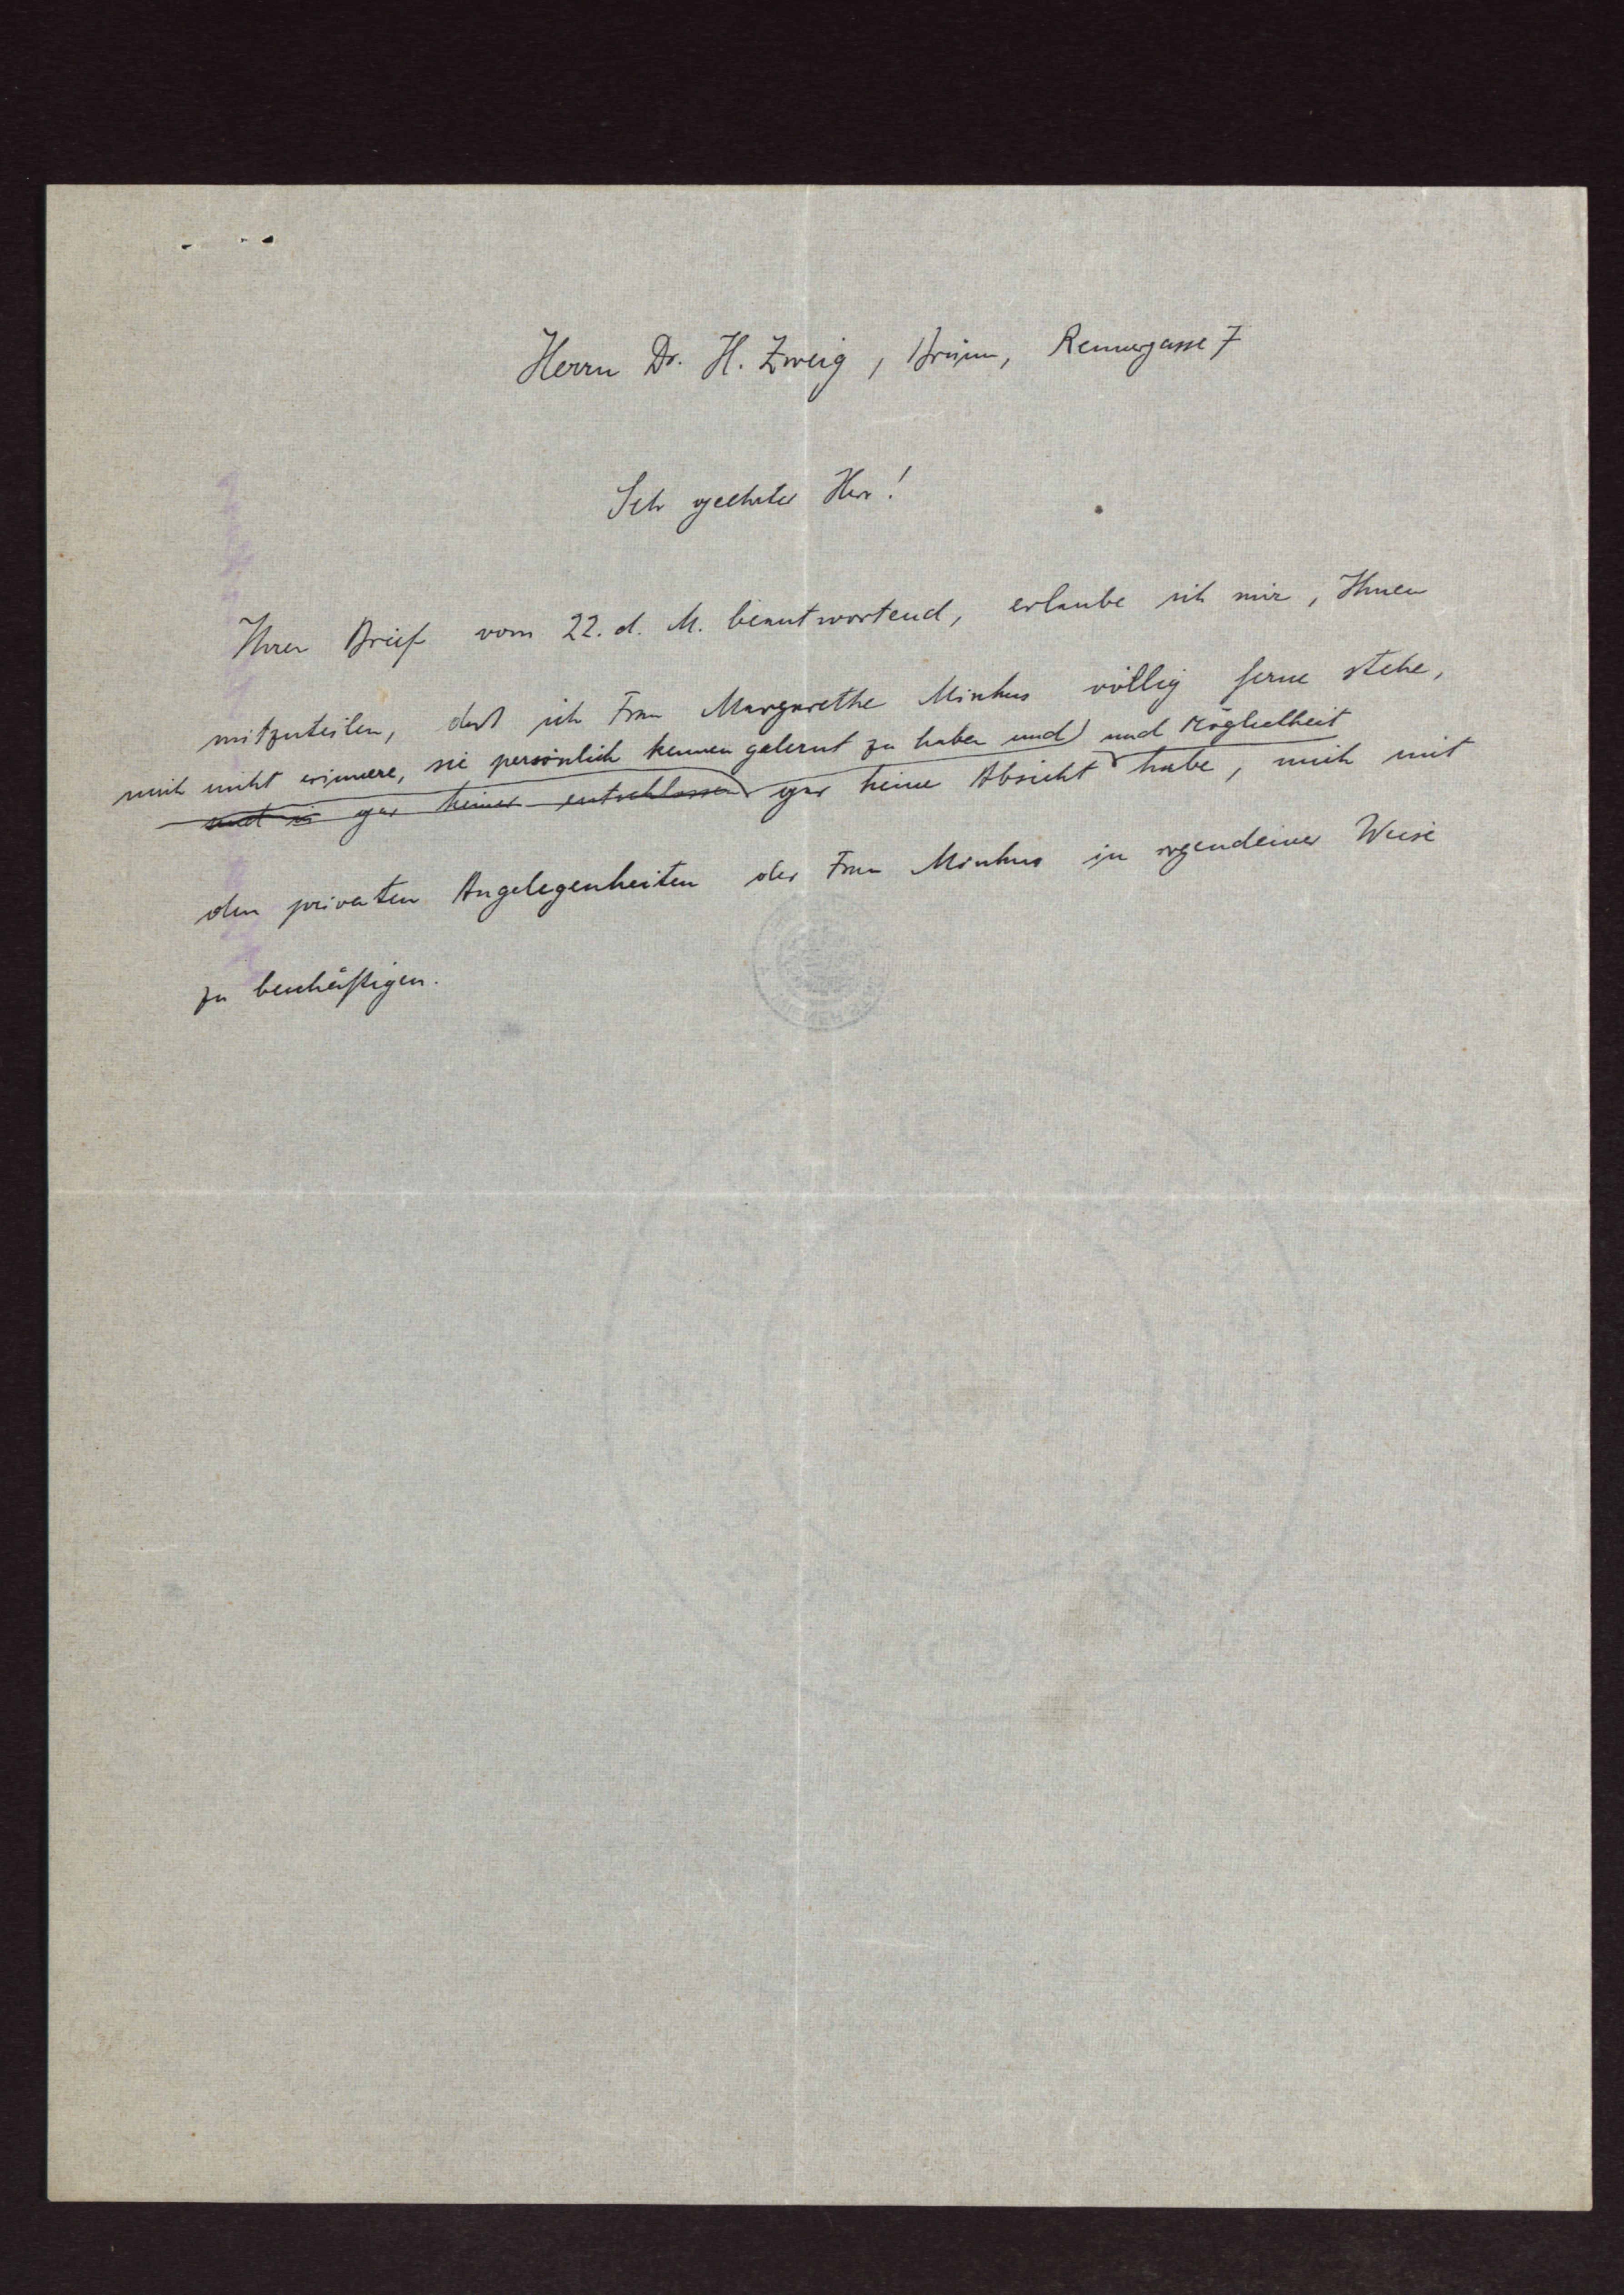 Herrn Dr. H. Zweig, Brünn, Rennergasse 7
Sehr geehrter Herr!
Ihren Brief vom 22. d. M. beantwortend, erlaube ich mir, Ihnen
mitzuteilen, dass ich Frau Margarethe Minkus völlig ferne stehe,
mich nicht erinnere, sie persönlich kennen gelernt zu haben und und Möglichkeit
gar keiner entschlossen gar keine Absicht habe, mich mit
den privaten Angelegenheiten der Frau Minkus in irgendeiner Weise
zu beschäftigen.